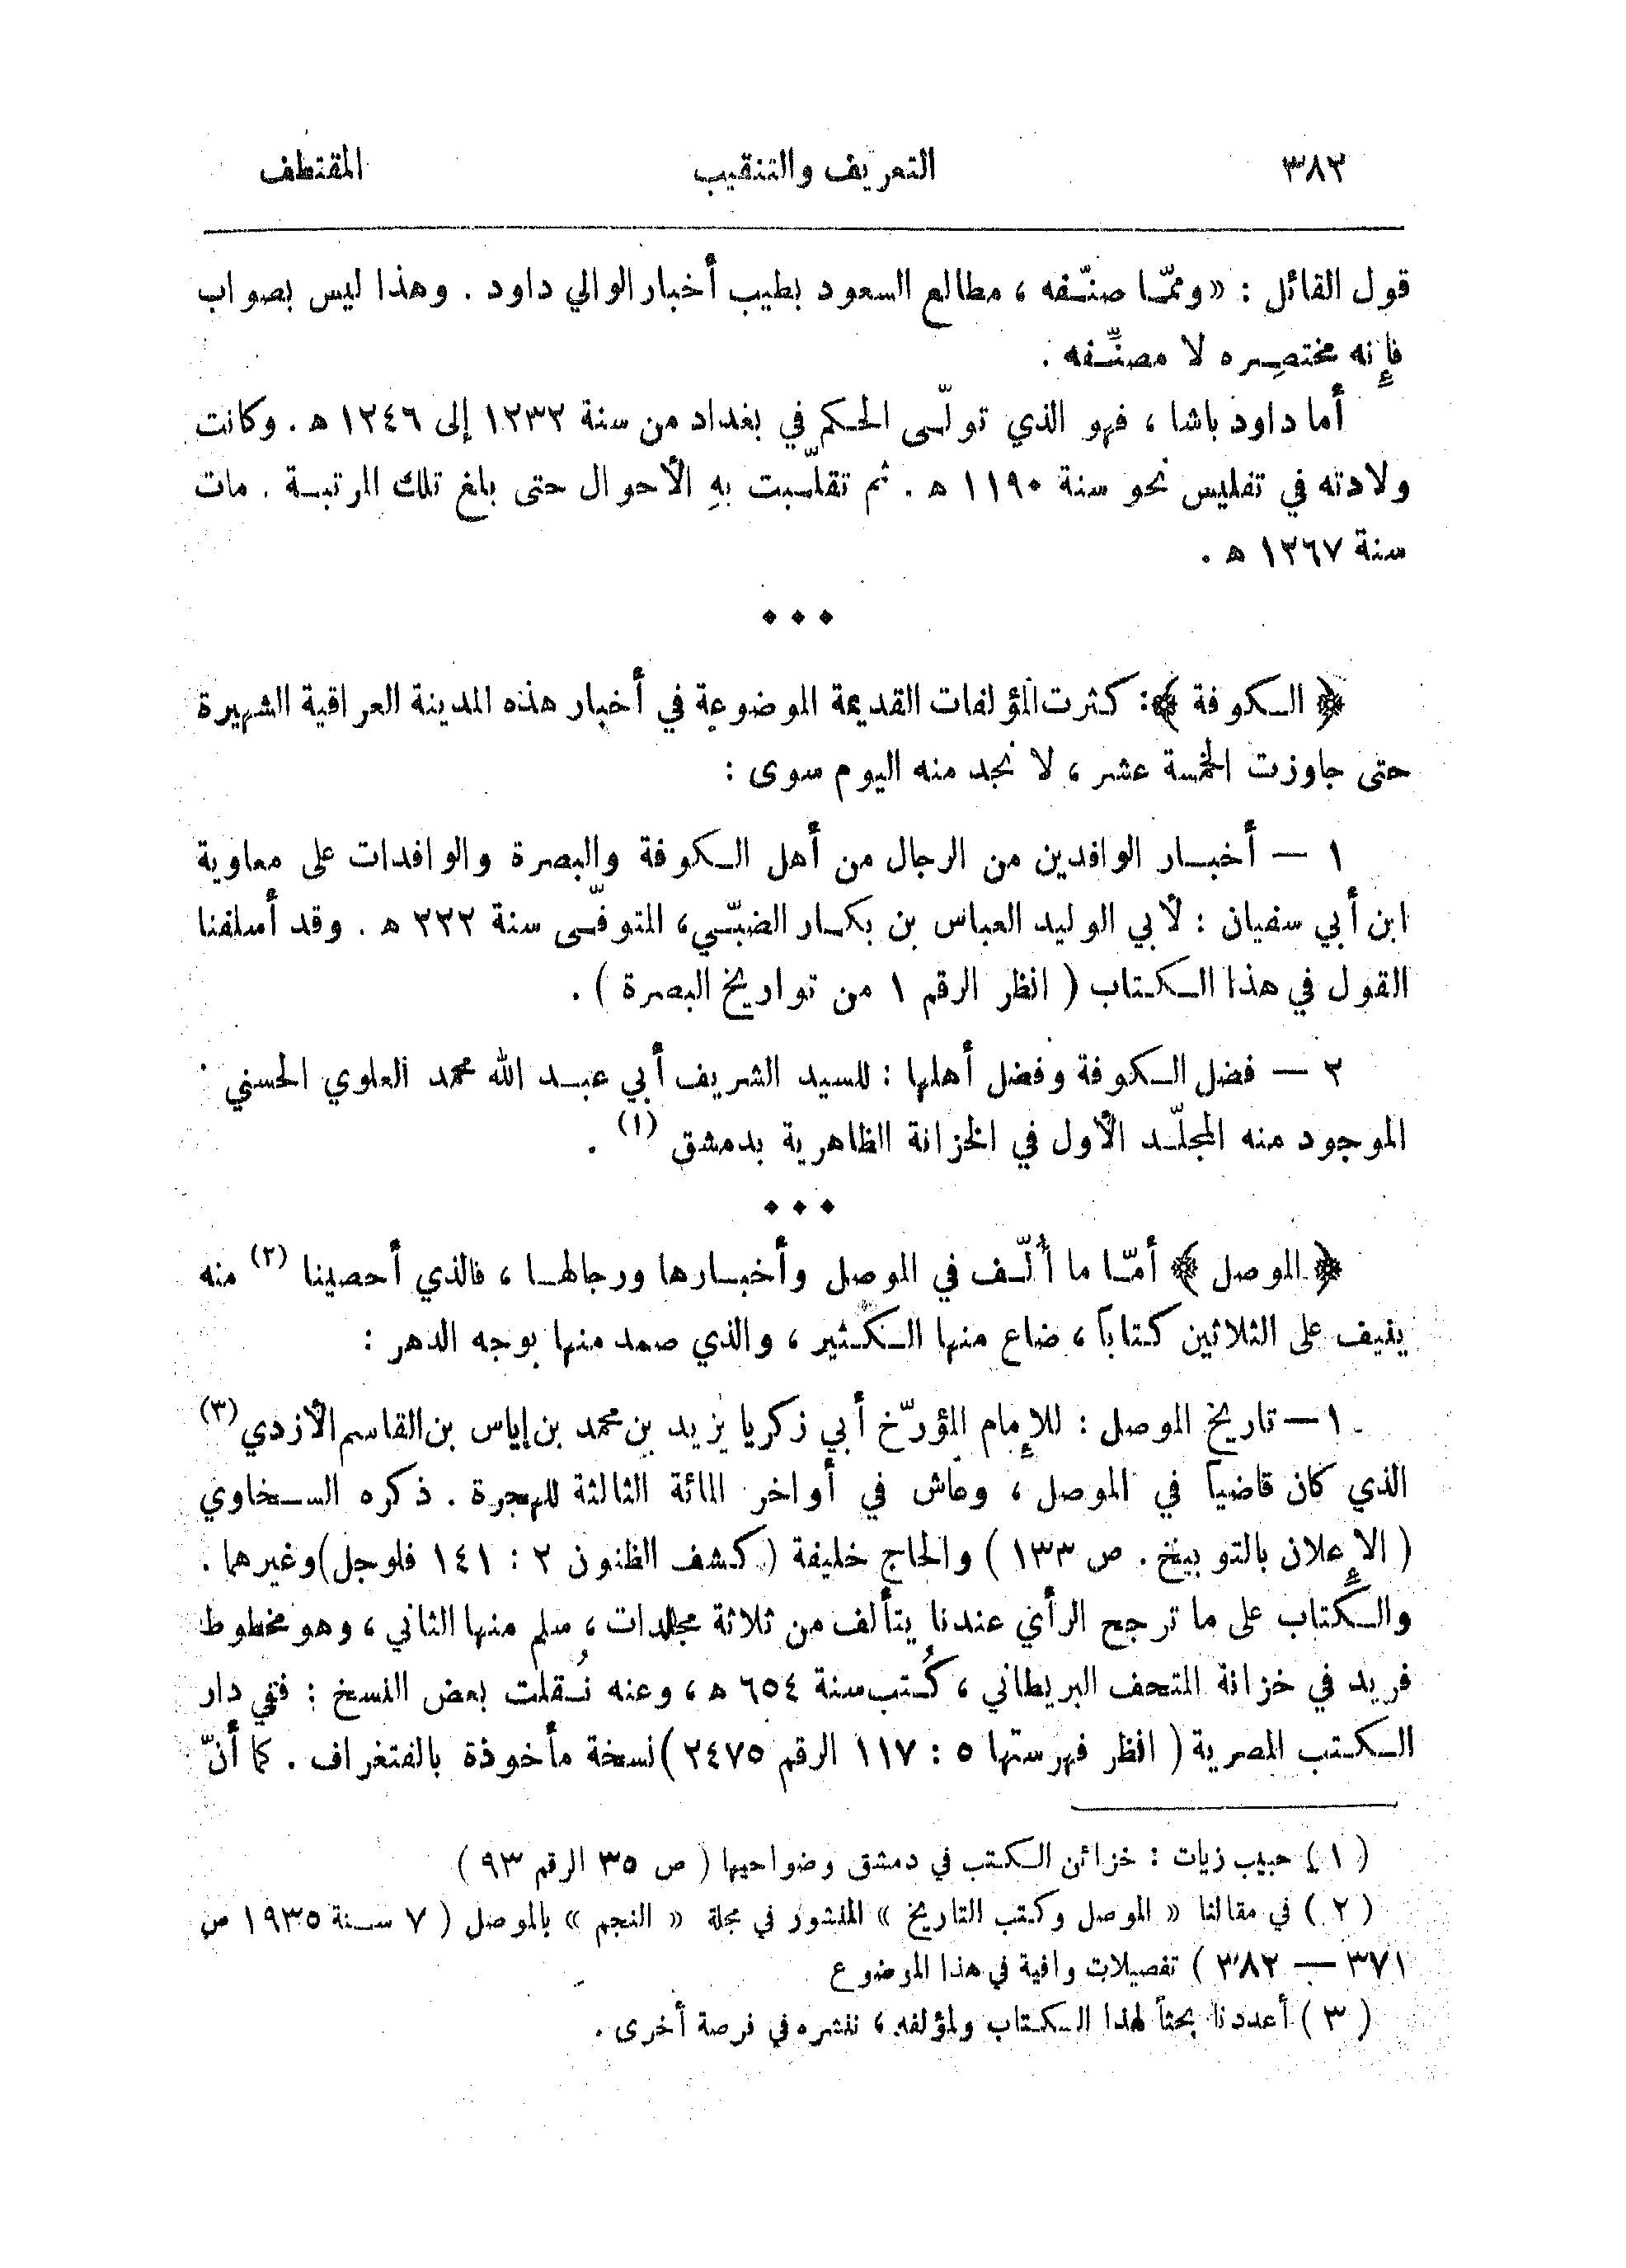 ٣٨٢ التعريف والتنقيب المقتطف
قول القائل : «وممّا صنّفه ، مطالع السعود بطيب أخبار الوالي داود . وهذا ليس بصواب
فإنه مختصِره لا مصنِّفه .
أما داود باشا ، فهو الذي تولّى الحكم في بغداد من سنة ١٢٣٢ إلى ١٢٤٦ ه . وكانت
ولادته في تفليس نحو سنة ١١٩٠ ه . ثم تقلّبت بهِ الأحوال حتى بلغ تلك المرتبة . مات
سنة ١٢٦٧ ه .
﴿ الكوفة ﴾: كثرت المؤلفات القديمة الموضوعة في أخبار هذه المدينة العراقية الشهيرة
حتى جاوزت الخمسة عشر ، لا نجد منه اليوم سوى :
١ — أخبار الوافدين من الرجال من أهل الكوفة والبصرة والوافدات على معاوية
ابن أبي سفيان : لأبي الوليد العباس بن بكار الضبّي، المتوفّى سنة ٢٢٢ ه . وقد أسلفنا
القول في هذا الكتاب ( انظر الرقم ١ من تواريخ البصرة ) .
٢ — فضل الكوفة وفضل أهلها : للسيد الشريف أبي عبد الله محمد العلوي الحسني
الموجود منه المجلّد الأول في الخزانة الظاهرية بدمشق (١) .
﴿ الموصل ﴾ أمّا ما أُلّف في الموصل وأخبارها ورجالها ، فالذي أحصينا (٢) منه
ينيف على الثلاثين كتاباً ، ضاع منها الكثير ، والذي صمد منها بوجه الدهر :
١ — تاريخ الموصل : للإمام المؤرّخ أبي زكريا يزيد بن محمد بن إياس بن القاسم الأزدي (٣)
الذي كان قاضياً في الموصل ، وعاش في أواخر المائة الثالثة للهجرة . ذكره السخاوي
( الإعلان بالتوبيخ . ص ١٣٣ ) والحاج خليفة ( كشف الظنون ٢ : ١٤١ فلوجل) وغيرهما .
والكتاب على ما ترجح الرأي عندنا يتألف من ثلاثة مجلدات ، سلم منها الثاني ، وهو مخطوط
فريد في خزانة المتحف البريطاني ، كُتب سنة ٦٥٤ ه ، وعنه نُقلت بعض النسخ : ففي دار
الكتب المصرية ( انظر فهرستها ٥ : ١١٧ الرقم ٢٤٧٥ ) نسخة مأخوذة بالفتغراف . كما أنّ
( ١ ) حبيب زيات : خزائن الكتب في دمشق وضواحيها ( ص ٣٥ الرقم ٩٣ )
( ٢ ) في مقالنا « الموصل وكتب التاريخ » المنشور في مجلة « النجم » بالموصل ( ٧ سنة ١٩٣٥ ص
٣٧١ — ٣٨٢ ) تفصيلات وافية في هذا الموضوع
( ٣ ) أعددنا بحثاً لهذا الكتاب ولمؤلفه ، ننشره في فرصة أخرى .